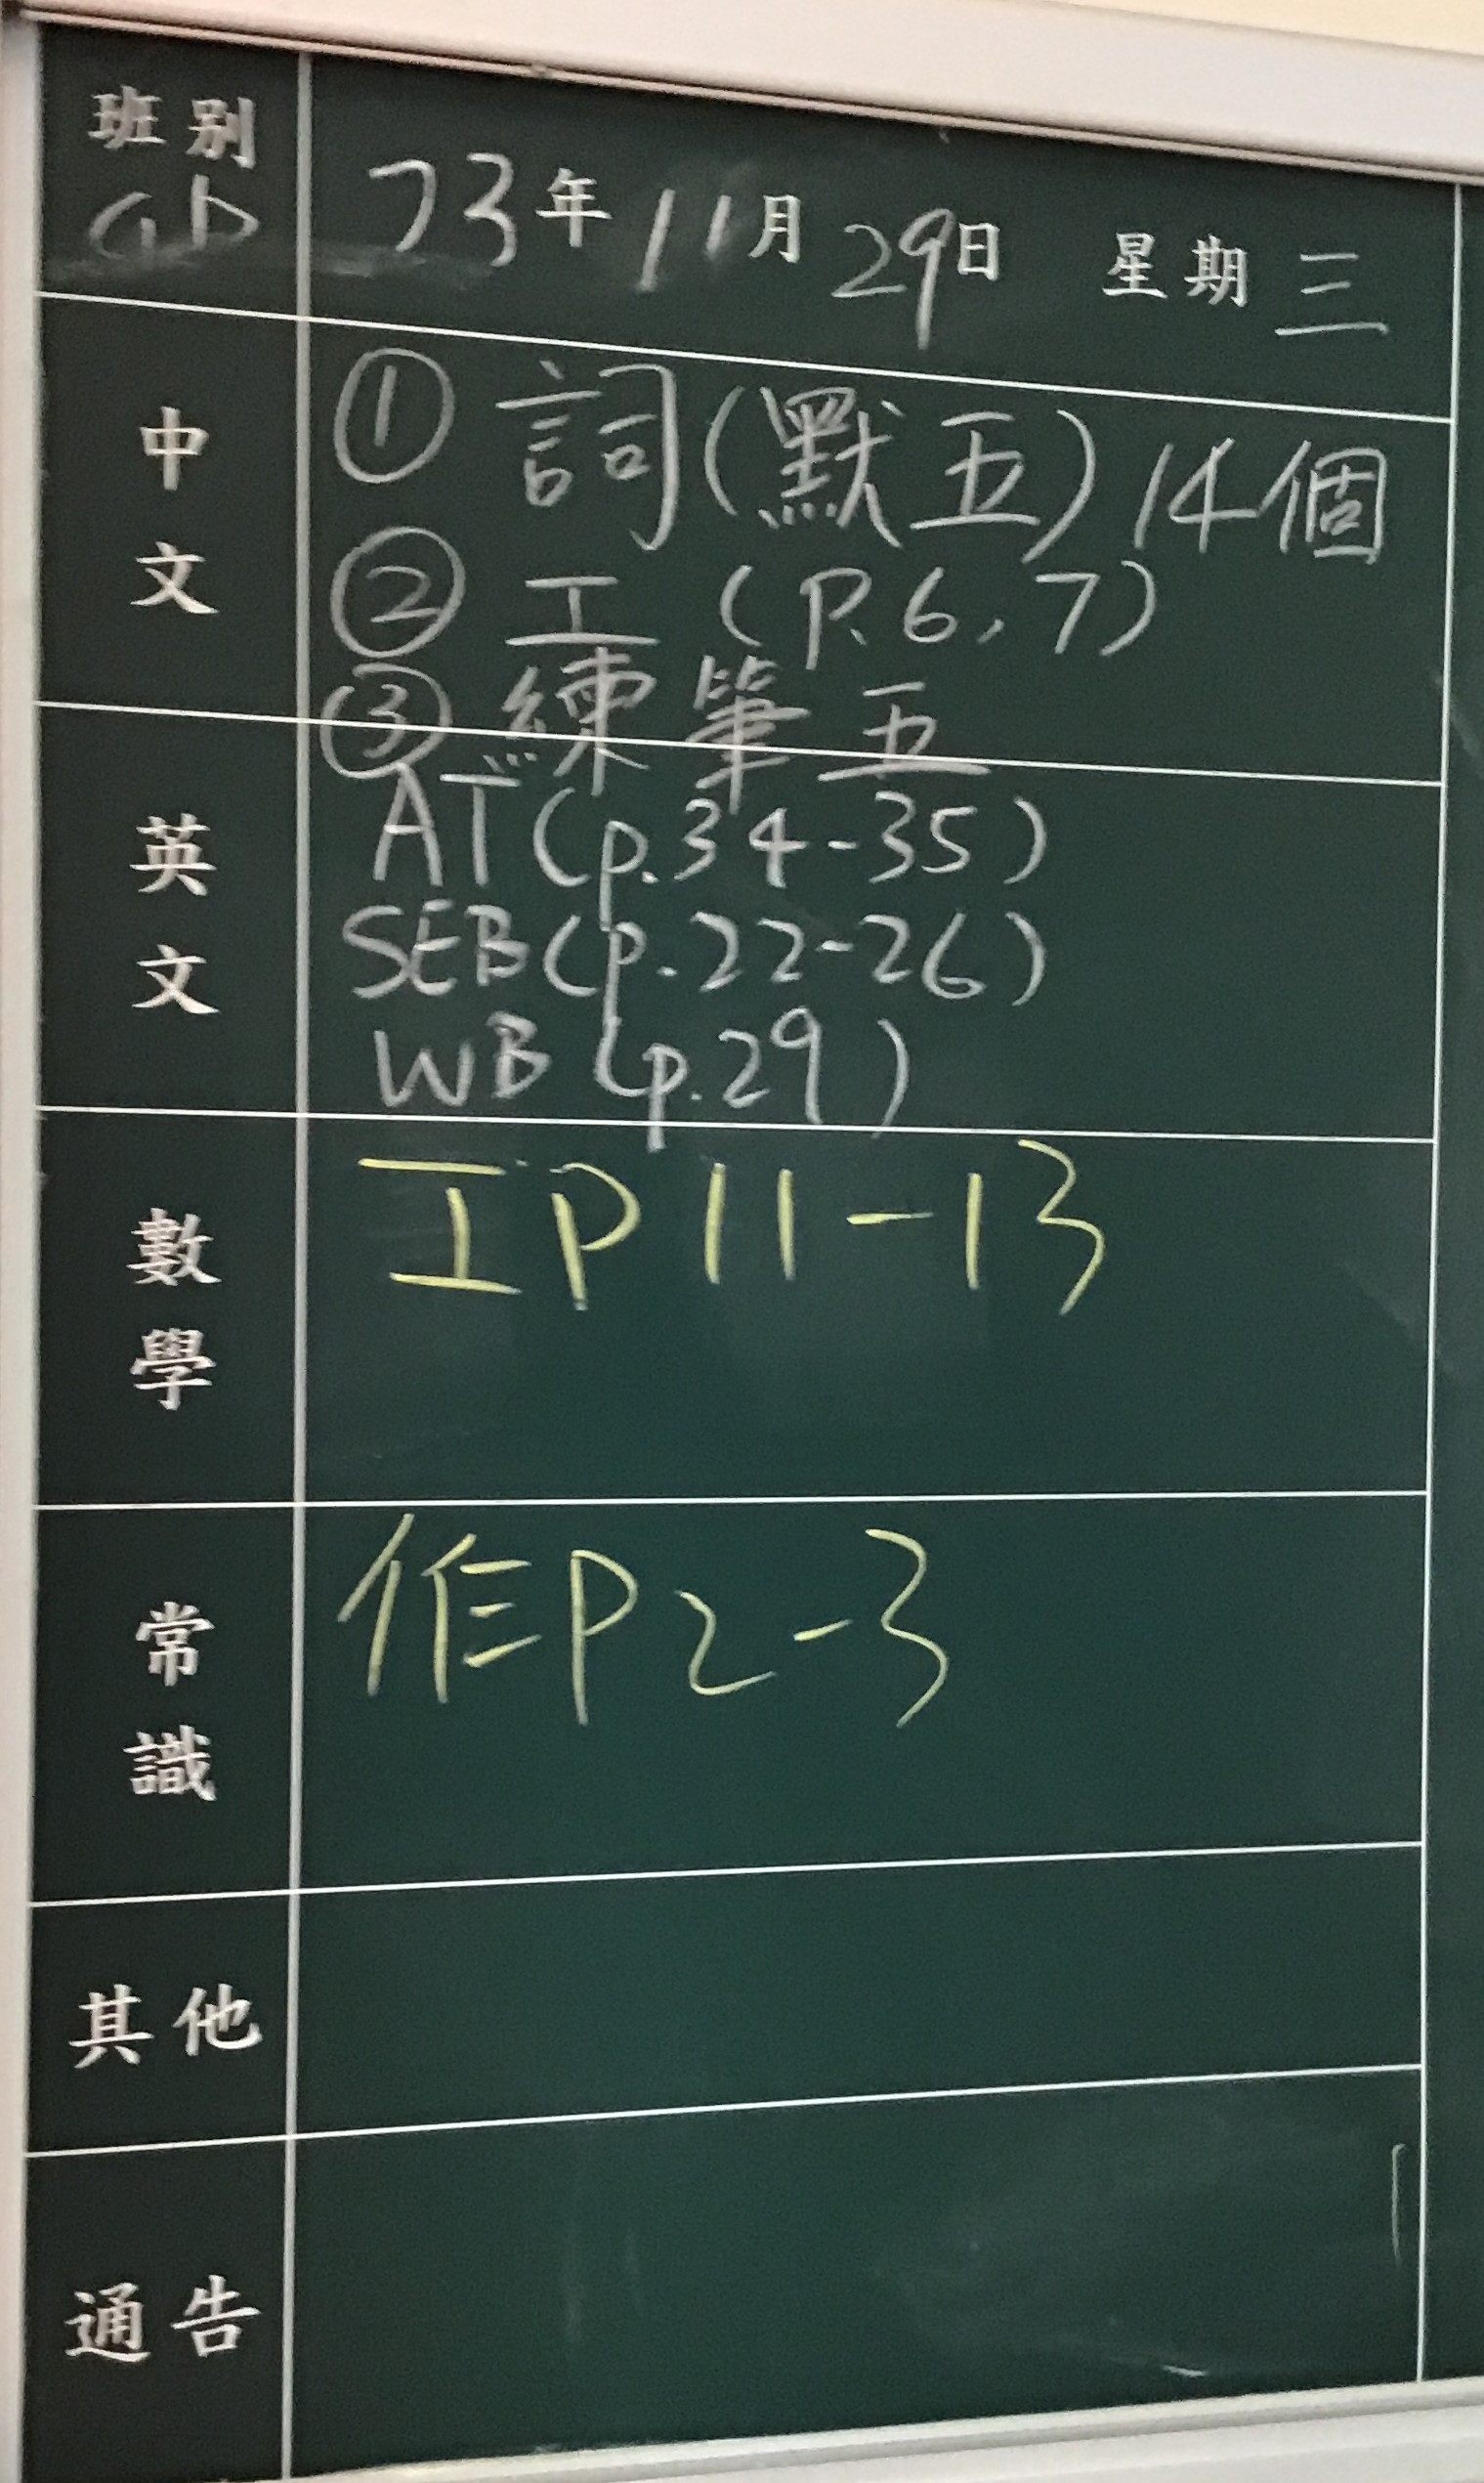 班別
73年11月29日 星期三
中文
① 詞(默五)14個
② 工 (P.6,7)
③ 練筆五
英文
AT(p.34-35)
SEB(p.22-26)
WB(p.29)
數學
工P11-13
常識
作P2-3
其他
通告